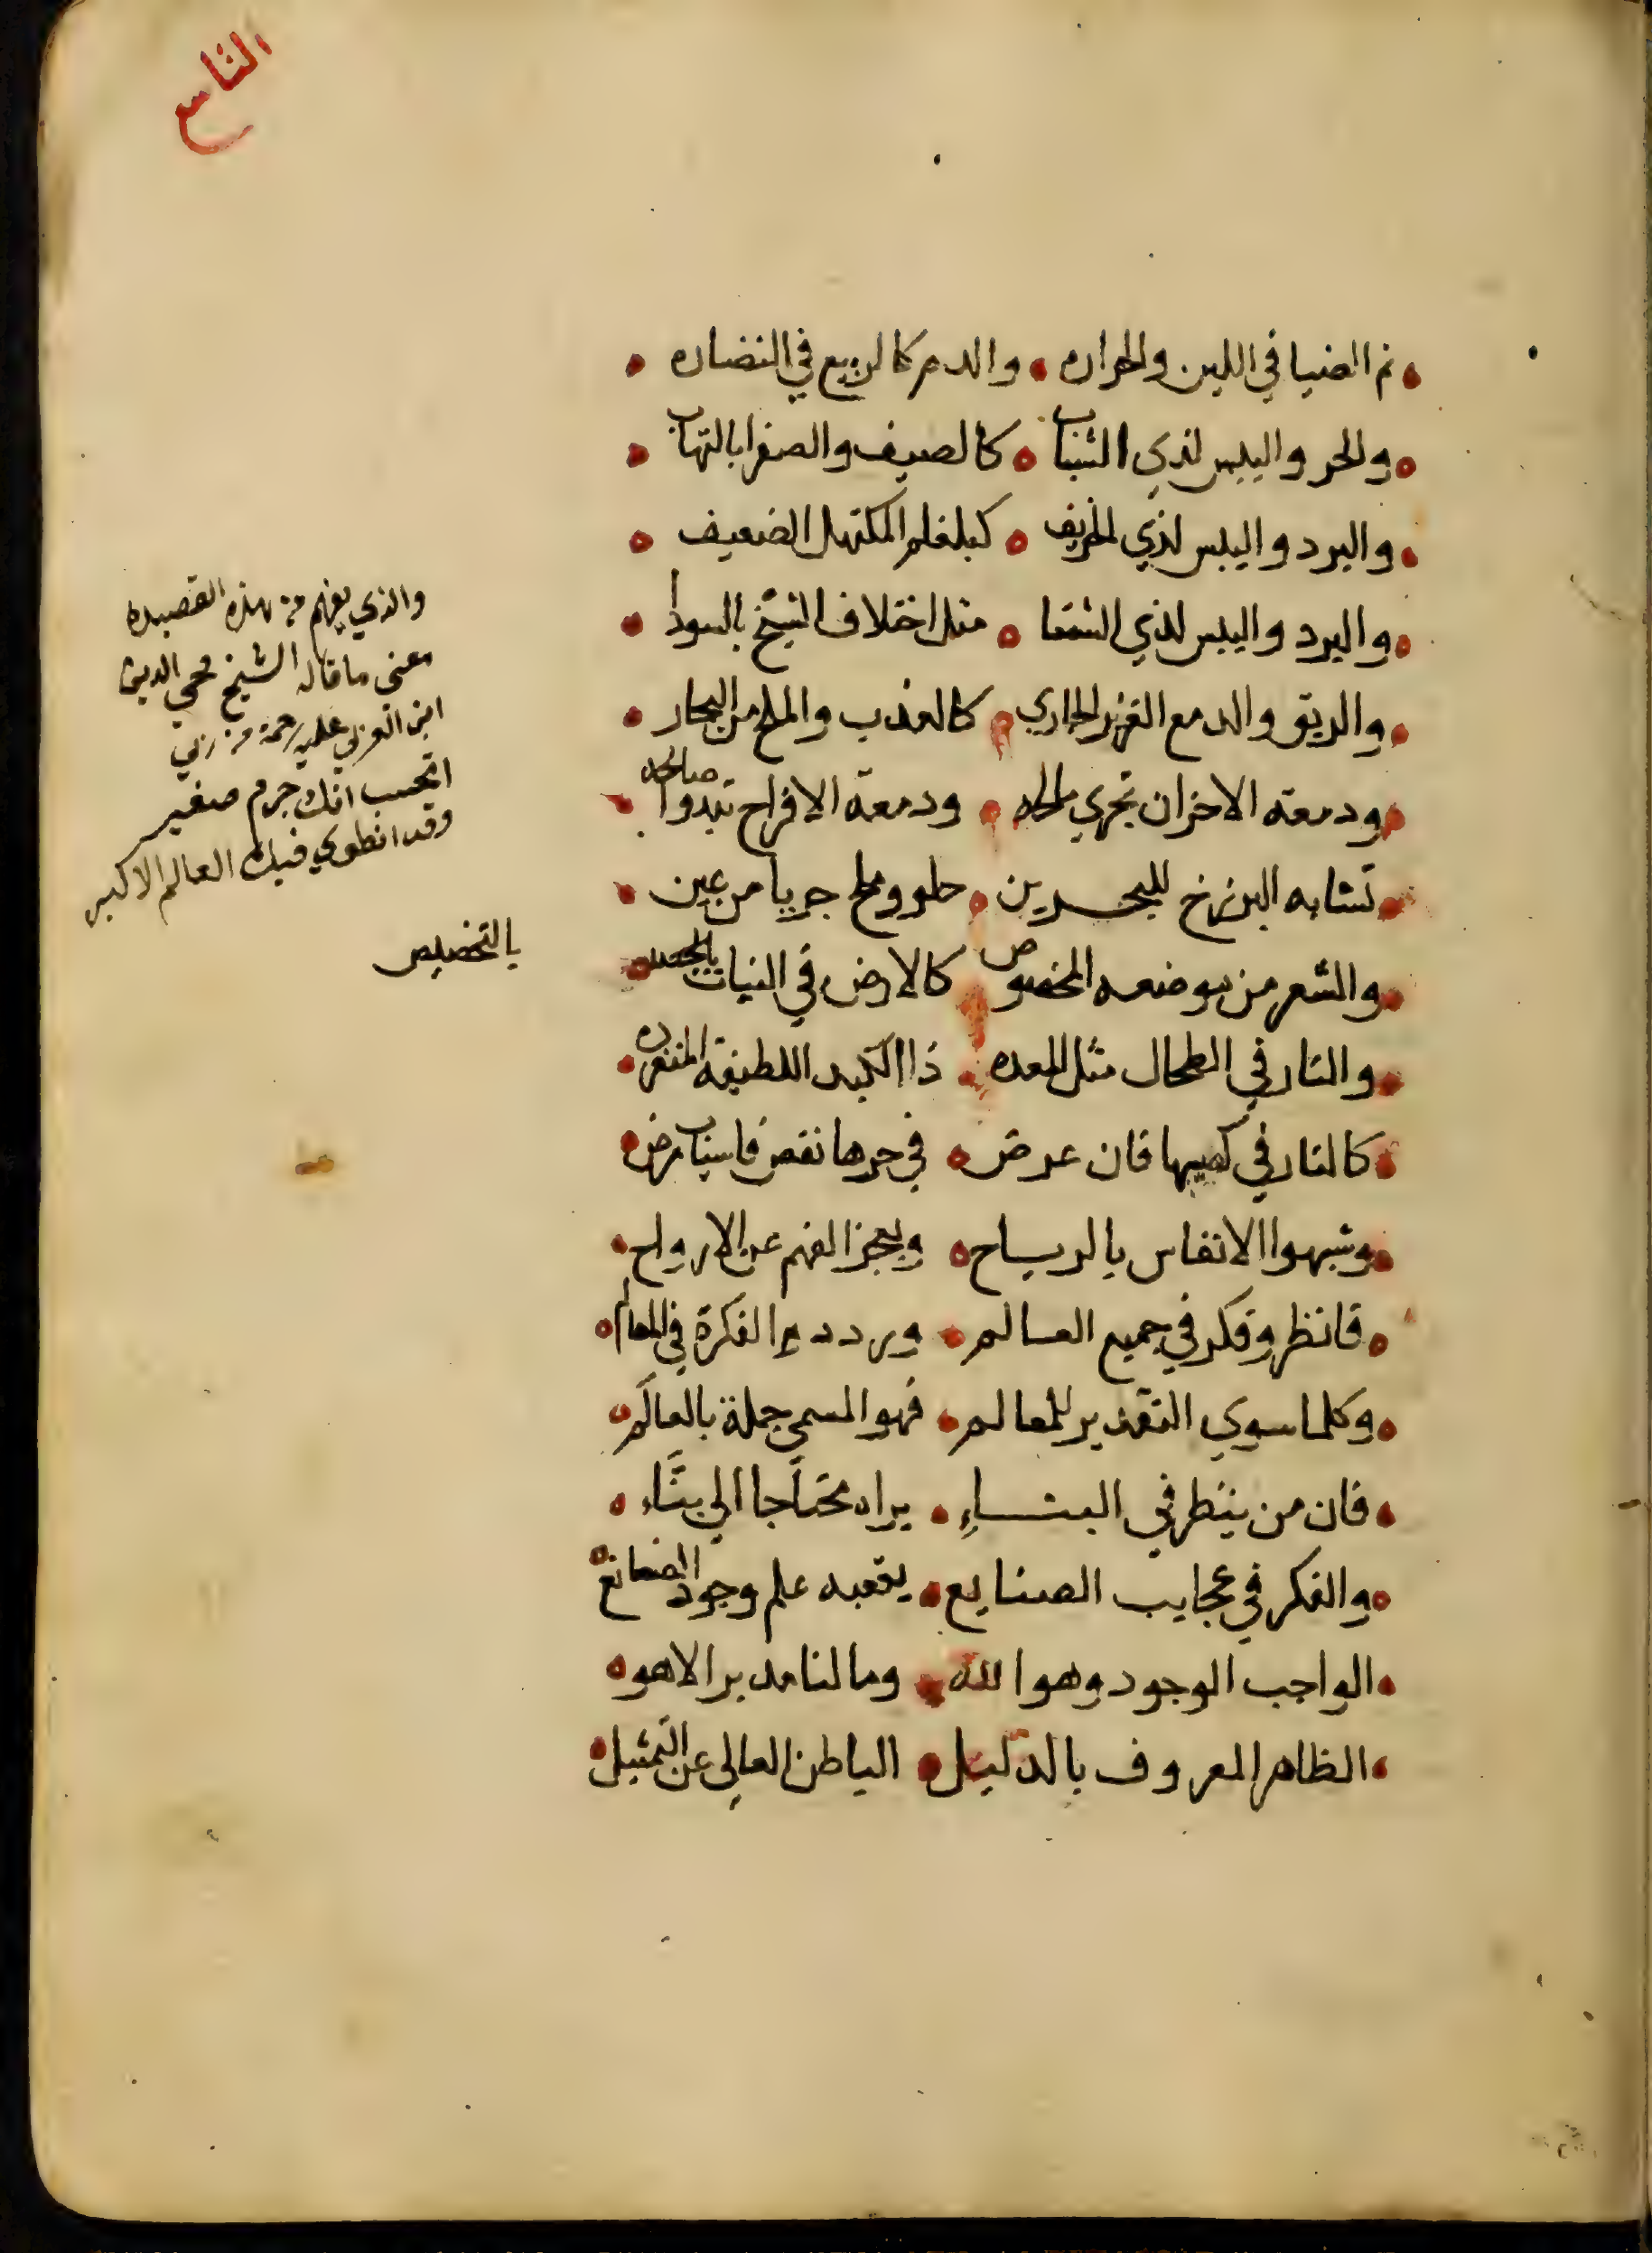 التاسع
ثم الصبا في اللين والحراره والدم كالربيع في النضاره
والحر واليبس لذي الشباب كالصيف والصفرا بالتهاب
والبرد واليبس لذي الخريف كبلغم المكتهل الضعيف
والبرد واليبس لذي الشتا مثل اختلاف الشيخ بالسودا
والريق والدمع الغزير الجاري كالعذب والملح من البحار
ودمعة الاحزان تجري مالحه ودمعة الافراح تبدوا صالحه
تشابه البرزخ للبحرين حلو وملح جريا من عين
والشعر من موضعه المخصوص كالارض في النبات بالتخصيص
والنار في الطحال مثل المعده ذا الكبد اللطيفة المنفرده
كالنار في لهيبها فان عرض في حرها نقص فاسباب مرض
وشبهوا الانفاس بالرياح ويعجز الفهم عن الارواح
فانظر وفكر في جميع العالم وردد الفكرة في المعالم
وكلما سوي القدير للمعالم فهو المسمى جملة بالعالم
فان من ينظر في البناءِ يراه محتاجا الي بنَّاء
والفكر في عجايب الصنايع يعقبه علم وجود الصانع
الواجب الوجود وهو الله وما لنا مدبر الا هو
الظاهر المعروف بالدليل الباطن العالي عن التمثيل
والذي يفهم من هذه القصيده
معنى ما قاله الشيخ محي الدين
ابن العربي عليه رحمة من ربي
اتحسب انك جرم صغير
وقد انطوي فيك العالم الاكبر
بالتخصيص